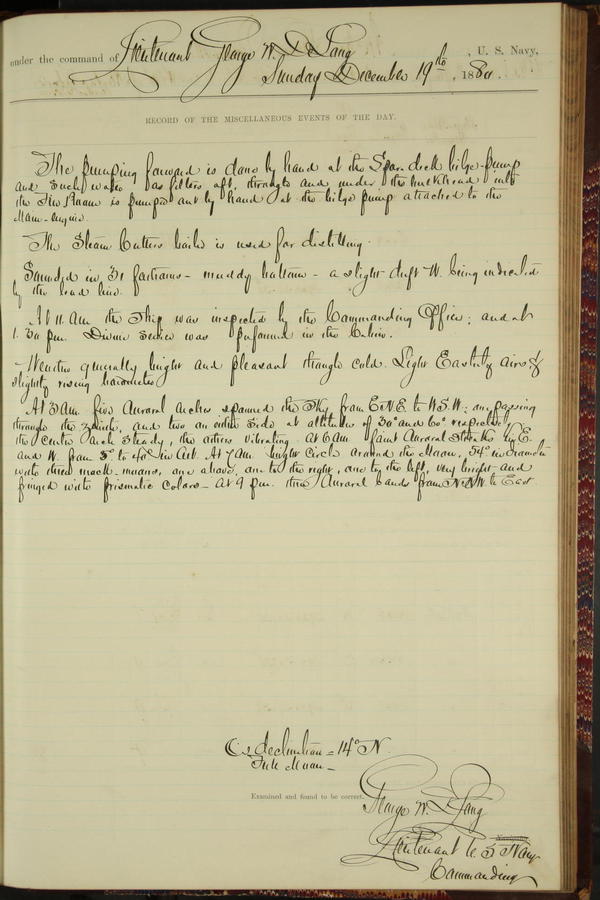 under the command of Lieutenant George W. De Long, U. S. Navy,
Sunday December 19th, 1880.
RECORD OF THE MISCELLANEOUS EVENTS OF THE DAY.
The pumping forward is done by hand at the Spar deck bilge-pump
and such water as filters aft, through and under the bulkhead into
the Fire Room is pumped out by hand at the bilge pump attached to the
Main-engine.
The Steam Cutters boiler is used for distilling.
Sounded in 31 fathoms - muddy bottom - a slight drift W. being indicated
by the lead line.
At 11. AM. the Ship was inspected by the Commanding Officer; and at
1. 30 pm. Divine Service was performed in the Cabin.
Weather generally bright and pleasant though cold. Light Easterly airs &
slightly rising barometer.
At 3 AM. five Auroral Arches spanned the Sky from E.N.E. to W.S.W; one passing
through the zenith, and two on either side at altitudes of 30° and 60° respectively
the Centre Arch Steady, the others vibrating. At 6 AM faint Auroral Streaks by E.
and W. from 5° to 40° in Alt. At 7 AM. bright Circle around the Moon, 54° in diameter
with three mock-moons, one above, one to the right, one to the left, very bright and
fringed with prismatic colors - At 9 pm. three Auroral bands from N.N.W. to East.
☾'s declination = 14° N.
Full Moon -
Examined and found to be correct.
George W. De Long
Lieutenant U. S. Navy
Commanding